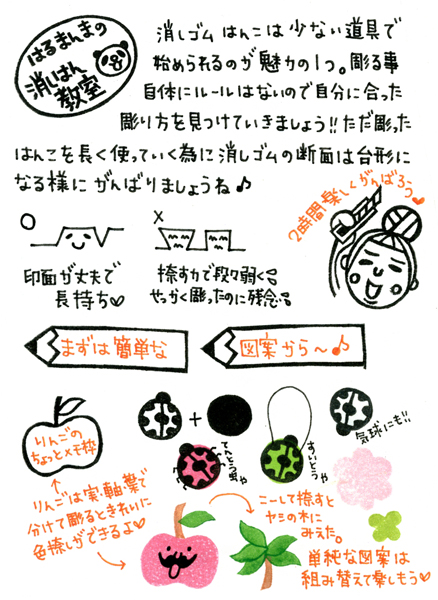 はるまんまの
消しはん
教室
消しゴムはんこは少ない道具で
始められるのが魅力の1つ。彫る事
自体にルールはないので自分に合った
彫り方を見つけていきましょう!!ただ彫った
はんこを長く使っていく為に消しゴムの断面は台形に
なる様にがんばりましょうね♪
2時間楽しくがんばろう♡
○
印面が丈夫で
長持ち♡
×
捺す力で段々弱く
せっかく彫ったのに残念
まずは簡単な
図案から〜♪
りんごの
ちょっとメモ枠
+
てんとう虫や
すいとうや
気球にも!!
りんごは実・軸・葉で
分けて彫るときれいに
色捺しができるよ♡
こーして捺すと
ヤシの木に
みえた。
単純な図案は
組み替えて楽しもう♡